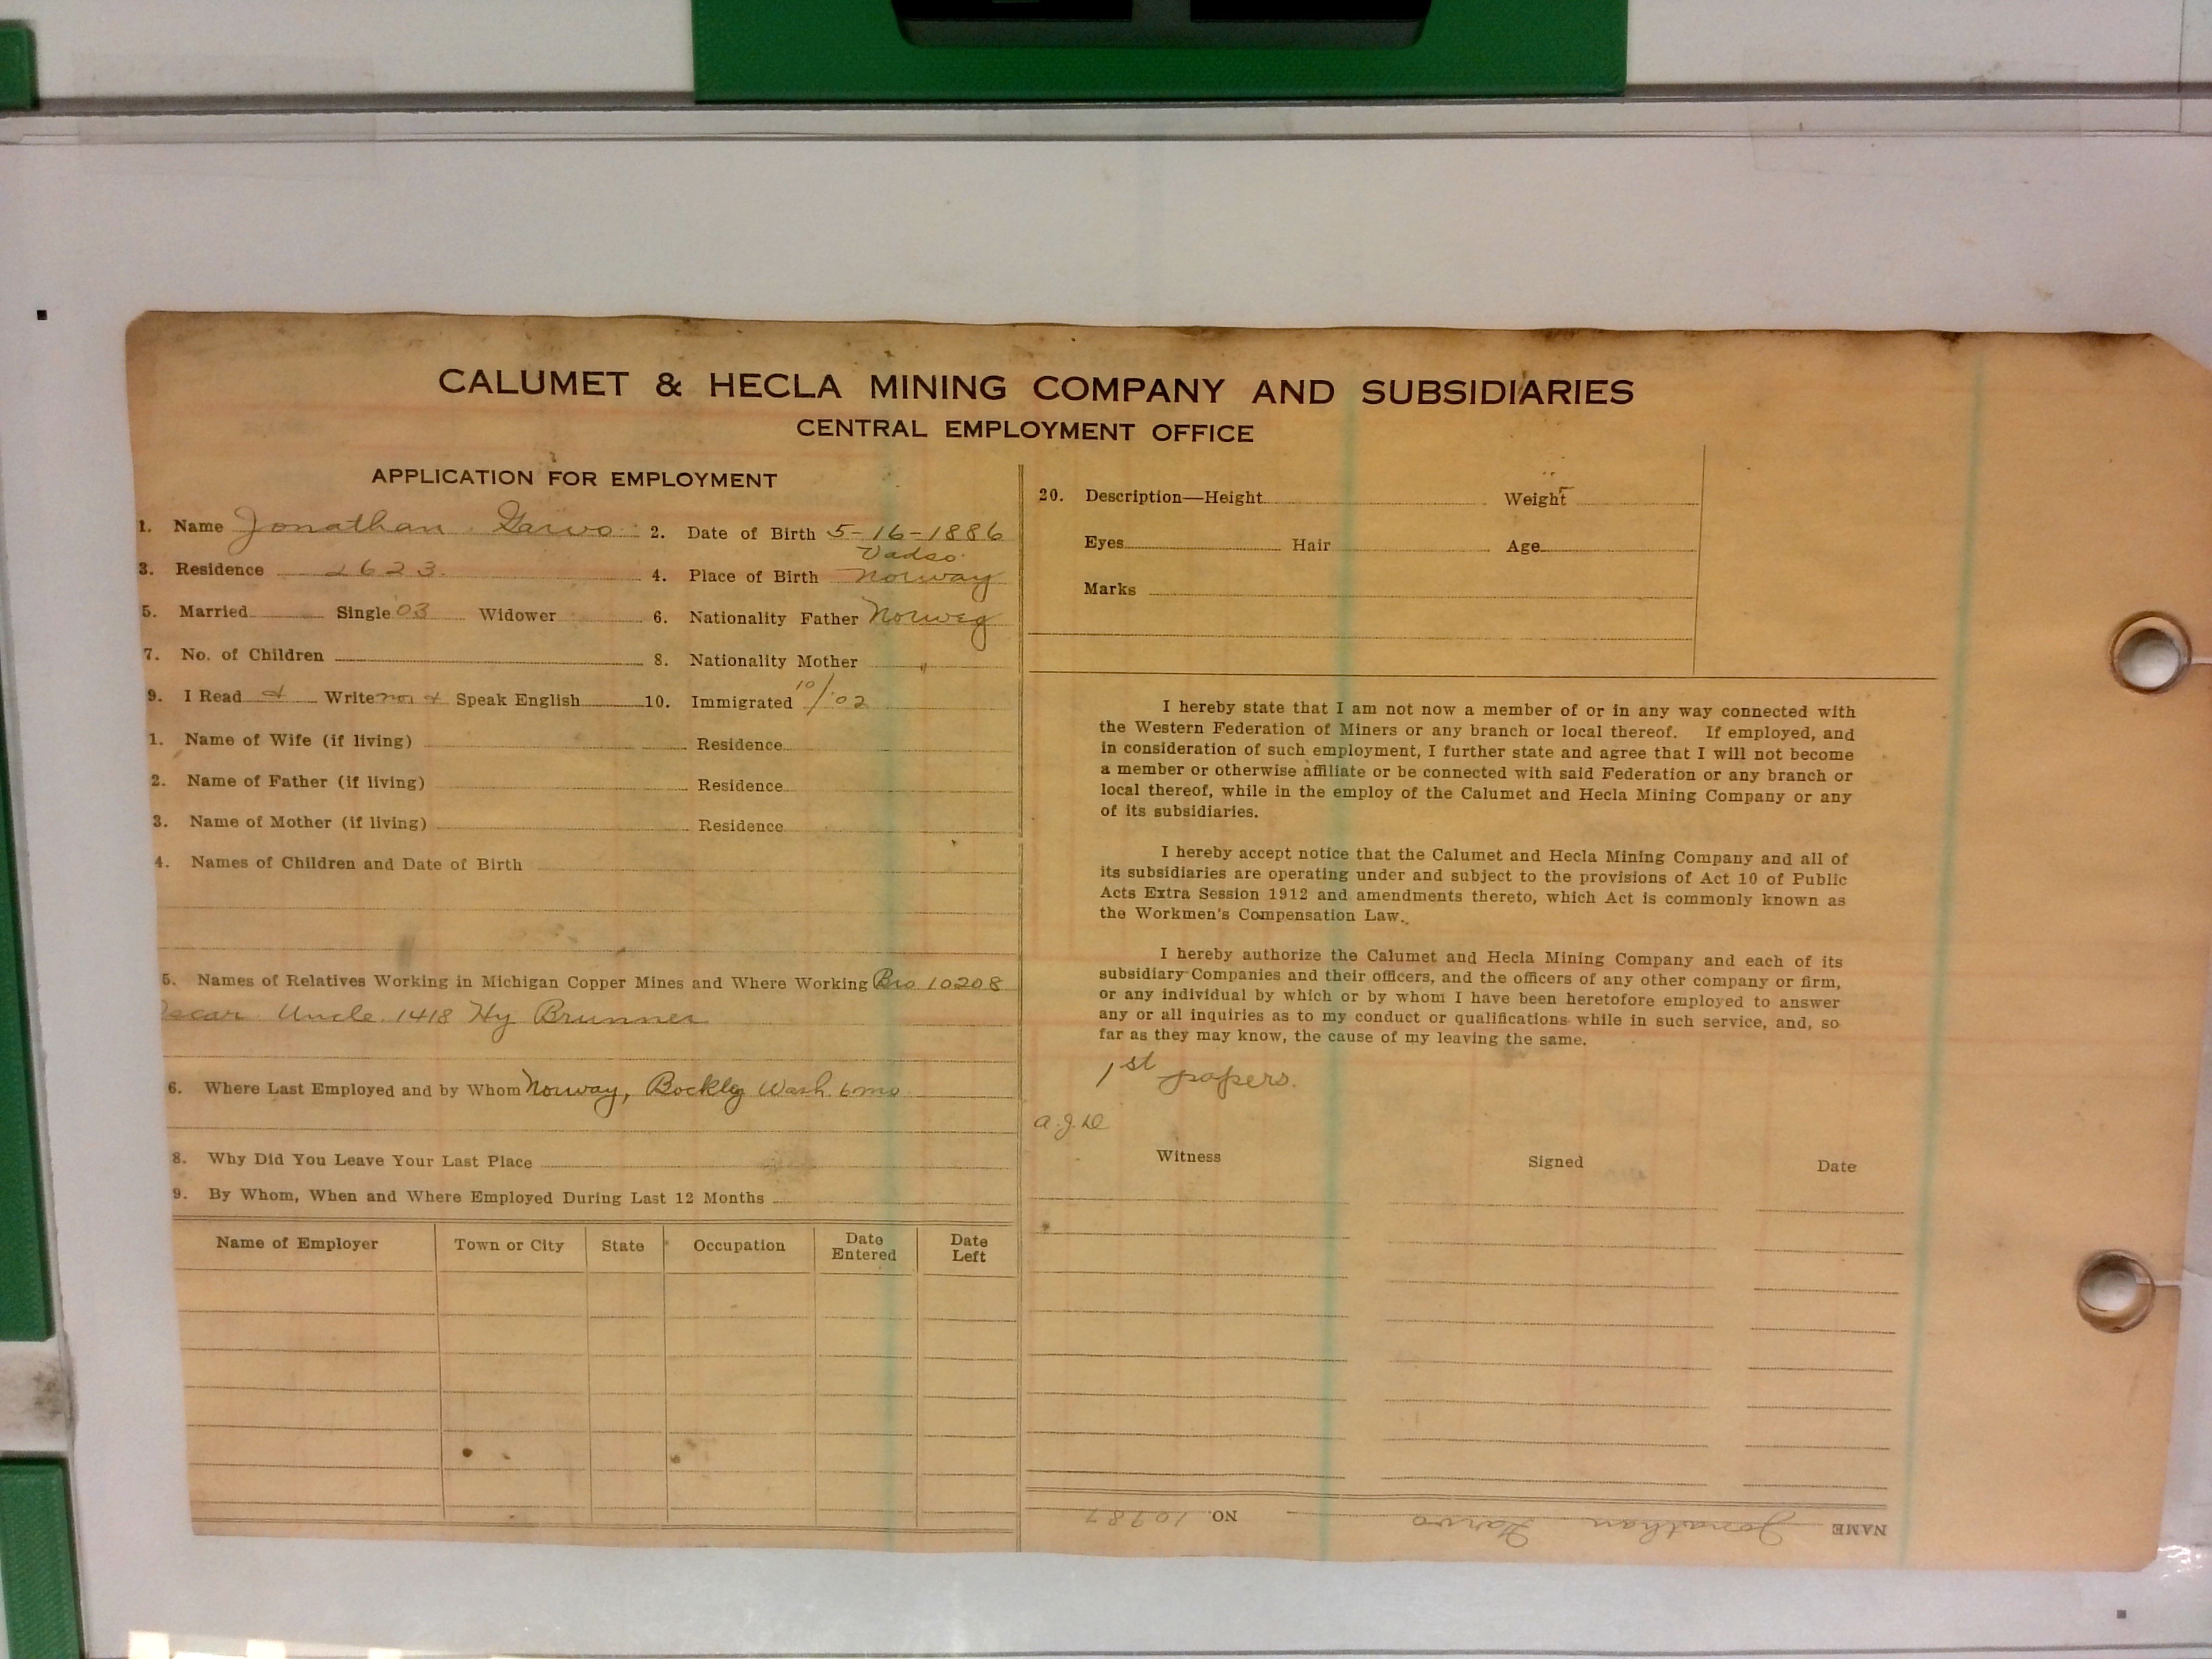 CALUMET & HECLA MINING COMPANY AND SUBSIDIARIES
CENTRAL EMPLOYMENT OFFICE
APPLICATION FOR EMPLOYMENT
1. Name Jonathan Garvo 2. Date of Birth 5-16-1886
Vadso
3. Residence 2623 4. Place of Birth Norway
5. Married Single 03 Widower 6. Nationality Father Norweg
7. No. of Children 8. Nationality Mother "
9. I Read & Write nor & Speak English 10. Immigrated 10/02
1. Name of Wife (if living) Residence
2. Name of Father (if living) Residence
3. Name of Mother (if living) Residence
4. Names of Children and Date of Birth
5. Names of Relatives Working in Michigan Copper Mines and Where Working Bro. 10208
Oscar Uncle 1418 Hy Brunner
6. Where Last Employed and by Whom Norway, Wash. 6 mo
8. Why Did You Leave Your Last Place
9. By Whom, When and Where Employed During Last 12 Months
Name of Employer Town or City State Occupation Date Entered Date Left
20. Description—Height Weight
Eyes Hair Age
Marks
I hereby state that I am not now a member of or in any way connected with
the Western Federation of Miners or any branch or local thereof. If employed, and
in consideration of such employment, I further state and agree that I will not become
a member or otherwise affiliate or be connected with said Federation or any branch or
local thereof, while in the employ of the Calumet and Hecla Mining Company or any
of its subsidiaries.
I hereby accept notice that the Calumet and Hecla Mining Company and all of
its subsidiaries are operating under and subject to the provisions of Act 10 of Public
Acts Extra Session 1912 and amendments thereto, which Act is commonly known as
the Workmen's Compensation Law.
I hereby authorize the Calumet and Hecla Mining Company and each of its
subsidiary Companies and their officers, and the officers of any other company or firm,
or any individual by which or by whom I have been heretofore employed to answer
any or all inquiries as to my conduct or qualifications while in such service, and, so
far as they may know, the cause of my leaving the same.
1st papers.
Witness Signed Date
NAME Jonathan Garvo NO. 10787